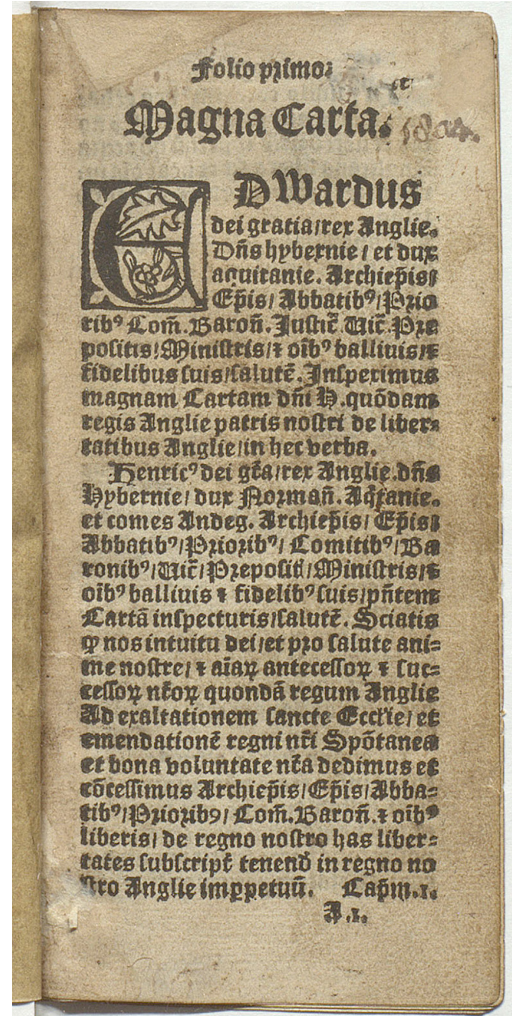 Folio primo:
Magna Carta. 1804.
EDwardus
dei gratia/rex Anglie.
Dñs hybernie/ et dux
aquitanie. Archiep̃is/
Ep̃is/ Abbatibꝰ/Prio
ribꝰ Com̃. Baroñ. Justic̃. Uic̃. Pre
positis/Ministris/⁊ oĩbꝰ balliuis/⁊
fidelibus suis/salutẽ. Inspeximus
magnam Cartam dñi H. quõdam
regis Anglie patris nostri de liber⸗
tatibus Anglie/in hec verba.
Henricꝰ dei gr̃a/rex Anglie.dñs
Hybernie/ dux Normañ. Aq̃tanie.
et comes Andeg. Archiep̃is/ Ep̃is/
Abbatibꝰ/Prioribꝰ/ Comitibꝰ/Ba
ronibꝰ/Uic̃/Preposit̃/Ministris/⁊
oĩbꝰ balliuis ⁊ fidelibꝰ suis/pñtem
Cartã inspecturis/salutẽ. Sciatis
ꝙ nos intuitu dei/et pro salute ani⸗
me nostre/ ⁊ aĩaꝝ antecessoꝝ ⁊ suc⸗
cessoꝝ nr̃oꝝ quondã regum Anglie
Ad exaltationem sancte Eccl̃ie/ et
emendationẽ regni nr̃i Spõtanea
et bona voluntate nr̃a dedimus et
cõcessimus Archiep̃is/Ep̃is/Abba⸗
tibꝰ/Prioribꝰ/ Com̃. Baroñ. ⁊ oĩbꝰ
liberis/ de regno nostro has liber⸗
tates subscript̃ tenend̃ in regno no
stro Anglie imꝑpetuũ. Cap̃m.i.
A.i.